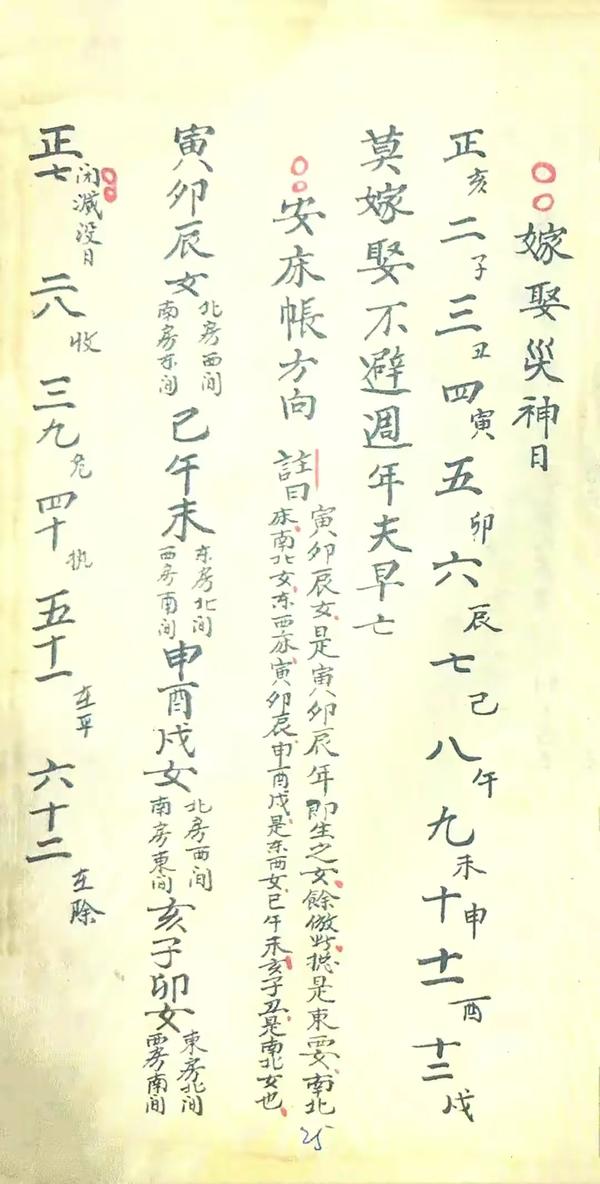 嫁娶災神日
正亥二子三丑四寅五卯六辰七己八午九未十申十一酉十二戌
莫嫁娶不避週年夫早亡
安床帳方向 註曰
寅卯辰女是寅卯辰年即生之女餘倣此揔是東西女南北
床南北女东西床寅卯辰申酉戌是东西女已午未亥子丑是南北女也
寅卯辰女
北房西间
南房东间
己午未
东房北间
西房南间
申酉戌女
北房西间
南房東间
亥子卯女
東房北间
西房南间
闭滅没日
正七 二八收三九危四十执五十一在平六十二在除
25